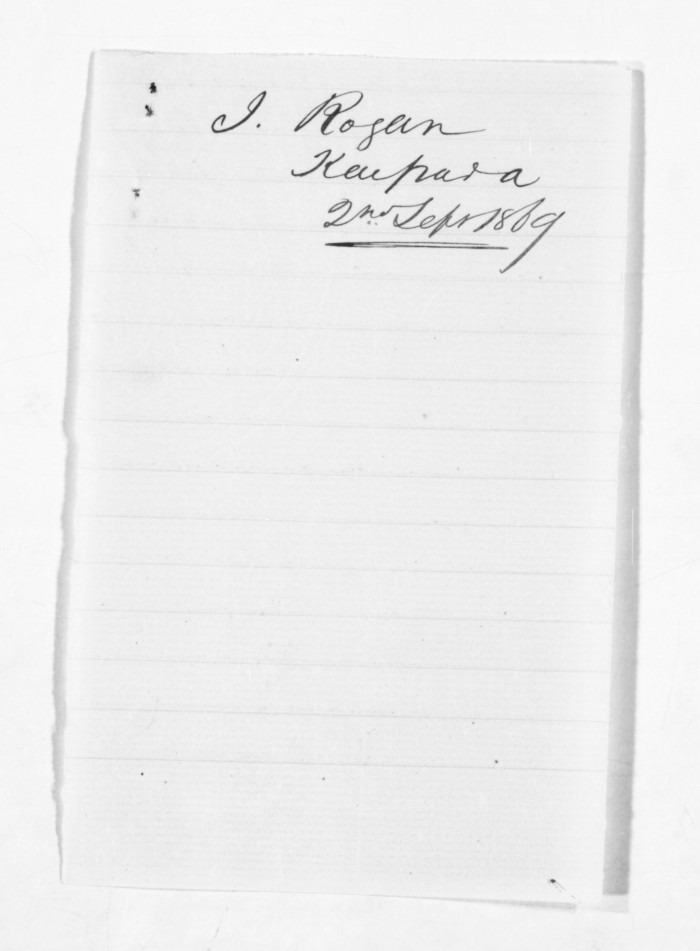 J. Rogan
Kaipara
2nd Sept 1869